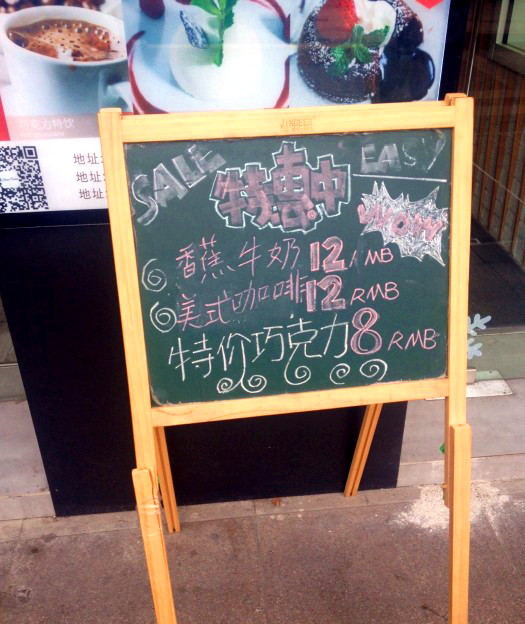 巧克力特饮
地址
地址:
地址:
JINBEER
SALE
EASY
特惠中
WOW
香蕉牛奶 12 RMB
美式咖啡 12 RMB
特价巧克力 8 RMB